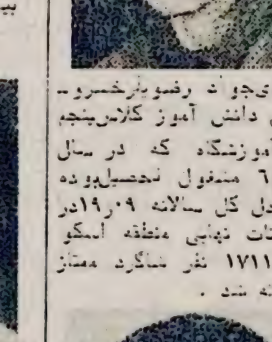 جواد رضوی‌ارخسرو-
دانش آموز کلاس‌پنجم
آموزشگاه که در سال
۶ مشغول تحصیل‌بوده
کل سالانه ۱۹٫۰۹در
نهایی منطقه اسکو
۱۷۱۱ نفر شاگرد ممتاز
شد .